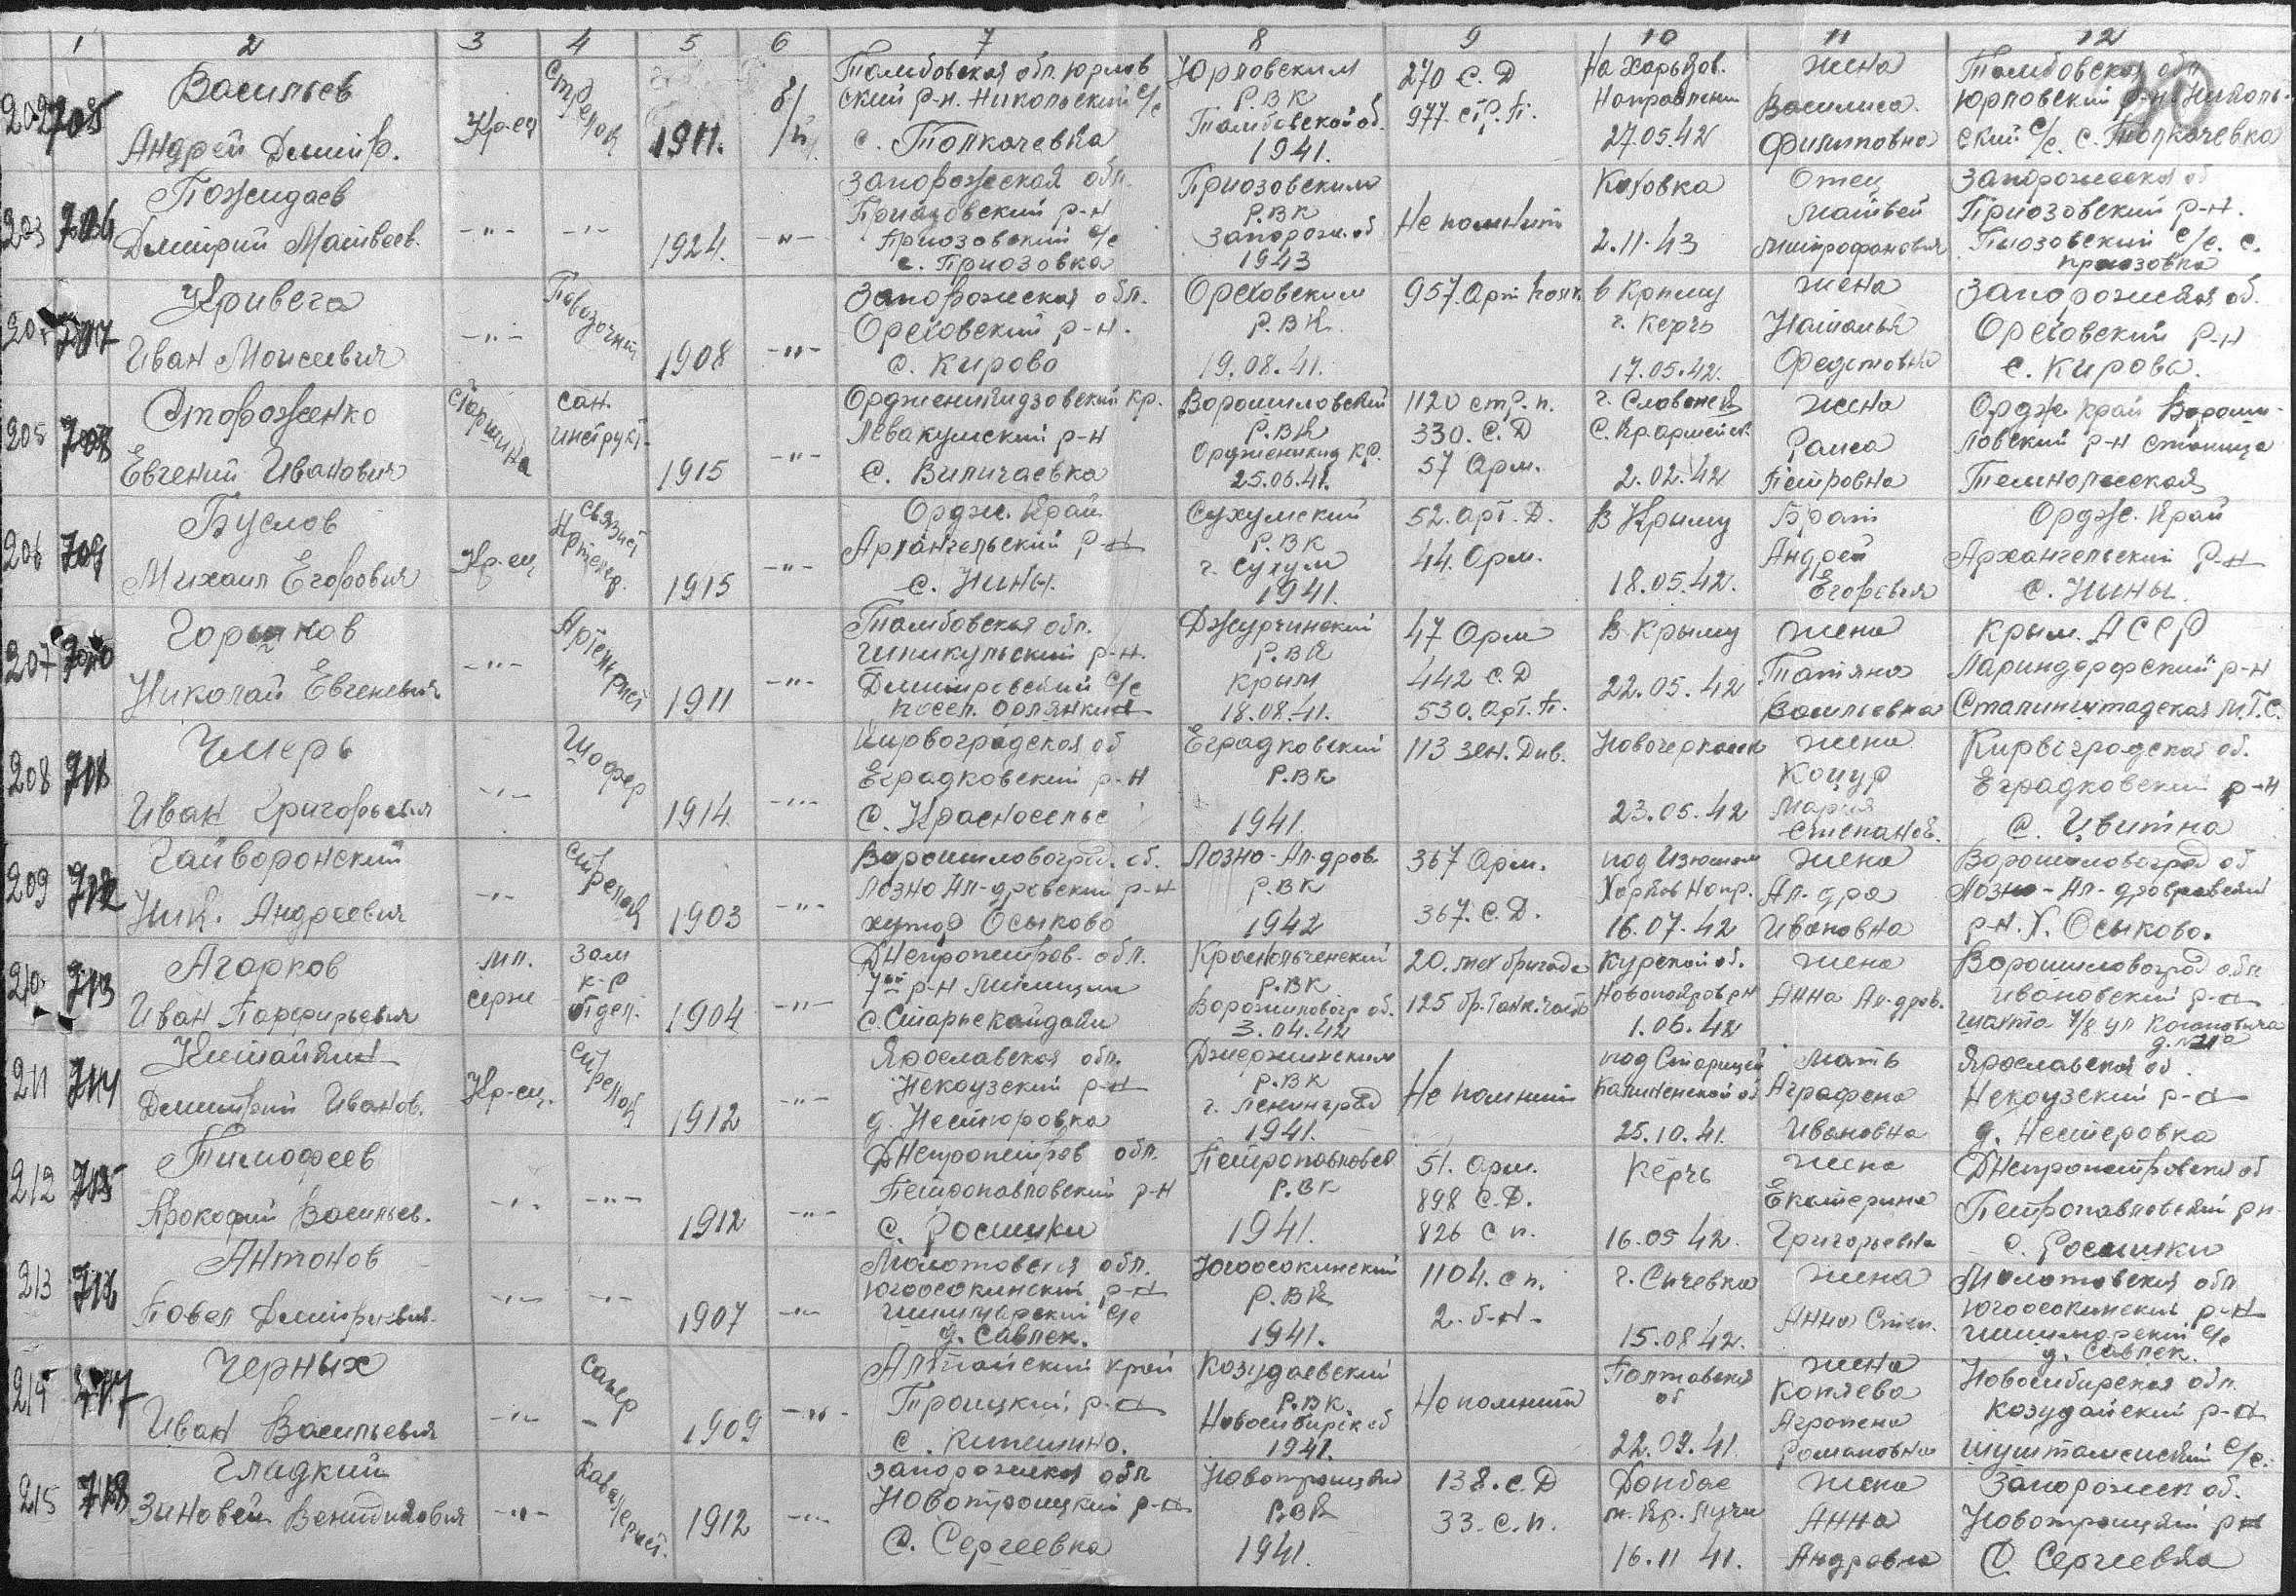 1 2 3 4 5 6 7 8 9 10 11 12
202 705 Васильев Андрей Дмитр. Кр-ец Стрелок 1911. б/п Тамбовская обл. Юрлов ский р-н. Никольский с/с с. Толкачевка Юрловским Р.В.К Тамбовской об. 1941. 270 С.Д 977 стр. п. На Харьков. Направлении 27.05.42 жена Василиса Филиповна Тамбовская обл Юрловский р-н. Николь- ский с/с. с. Толкачевка
203 706 Пожидаев Дмитрий Матвеев. -"- -"- 1924. -"- Запорожская обл. Приазовский р-н Приозовский с/с с. Приозовка Приозовским Р.В.К Запорож. об 1943 Не помнит Каховка 2.11.43 Отец Матвей Митрофанович Запорожская об Приозовский р-н. с/с. с. Приозовка
707 Кривега Иван Моисеевич -"- Повозочный 1908 -"- Запорожская обл. Ореховский р-н. С. Кирово Ореховским Р.В.К. 19.08.41. 957. Арт полк. в Крыму г. Керчь 17.05.42. жена Наталья Федотовна Запорожская об. Ореховский р-н с. Кирово.
205 708 Стороженко Евгений Иванович Старшина сан. инструкт. 1915 -"- Орджоникидзовский кр. Левакумский р-н С. Величаевка Ворошиловский Р.В.К Орджоникид кр. 25.06.41. 1120 стр. п. 330. С.Д 57 Арм. г. Славянск С. Кр. армейск. 2.02.42 жена Раиса Петровна Ордж. край Вороши- ловский р-н станица Темнолесская
206 709 Буслов Михаил Егорович Кр-ец связист Артилер. 1915 -"- Ордж. Край Архангельский р-н С. Нины. Сухумский Р.В.К г. Сухум 1941. 52. арт. Д. 44. Арм. В Крыму 18.05.42. Брат Андрей Егорович Ордж. Край Архангельский р-н С. Нины.
207 Николай Евгеневич -"- Артелерист 1911 -"- Тамбовская обл. р-н. Дмитровский с/с посел. Орлянкин Джурчинский Р.В.К Крым 18.08.41. 47 Арм 442 С.Д 530. Арт. П. В Крыму 22.05.42 жена Татьяна Васильевна Крым. АССР Лариндорфский р-н М.Т.С.
208 711 Чмерь Иван Григорьевич -"- Шофер 1914 -"- Кировоградская об Еградковский р-н С. Красноселье Еградковский Р.В.К 1941. 113 зен. Див. Новочеркасск 23.05.42 жена Коцур Мария Степанов. Кировоградская об. Еградковский р-н С. Цвитна
209 712 Гайворонский Ник. Андреевич -"- Стрелок 1903 -"- Ворошиловоград. об. Лозно Ал-дровский р-н хутор Осыково Лозно-Ал-дров. Р.В.К 1942 367 Арм. 367. С.Д. под Изюмом Харьков Напр. 16.07.42 жена Ал-дра Ивановна Ворошиловоград об Лозно-Ал-дровский р-н. Х. Осыково.
210 713 Агарков Иван Порфирьевич мл. серж зам к-р отдел. 1904 -"- Днепропетров. обл. 7ой р-н Милиции С. Старые Кайдаки Р.В.К Ворошиловогр об. 3.04.42 20. мех бригада 125 бр. Танк. часть Курской об. 1.06.42 жена Анна Ал-дров. Ворошиловоград обл Ивановский р-н шахта 7/8 ул Кагановича
211 714 Китайкин Дмитрий Иванов. Кр-ец. Стрелок 1912 -"- Ярославская обл. Некоузский р-н д. Несторовка Джержинским Р.В.К г. Ленинград 1941. Не помнит под Старицей Калиненской об 25.10.41. Мать Аграфена Ивановна Ярославская об. Некоузский р-н д. Нестеровка
212 715 Тимофеев Прокофий Васильев. -"- -"- 1912 -"- Днепропетров обл. Петропавловский р-н С. Росишки Петропавловск Р.В.К 1941. 51. Арм. 898 С.Д. 826 с п. Керчь 16.05 42. жена Екатерина Григорьевна Днепропетровская об Петропавловский рн. С. Росишки
213 716 Антонов Павел Дмитриевич. -"- -"- 1907 -"- Молотовская обл. Югоосокинский р-н с/с д. Савлек. Югоосокинский Р.В.К 1941. 1104. с п. 2. б-н- г. Сичевка 15.08 42. жена Анна Степ. Молотовская обл Югоосокинский р-н с/с д. Савлек.
214 717 Черных Иван Васильевич -"- Сапер 1909 -"- Алтайский край Троицкий р-н Р.В.К. Новосибирск об 1941. Не помнит Полтавская об 22.09.41. жена Коняева Агропена Романовна Новосибирская обл. р-н с/с.
215 718 Гладкий Зиновей -"- Кавалерист. 1912 -"- Запорожская обл Новотроицкий р-н С. Сергеевка Новотроицкий Р.В.К 1941. 138. С.Д 33. с.п. Донбас 16.11 41. жена Анна Андровна Запорожск об. Новотроицкий рн С. Сергеевка